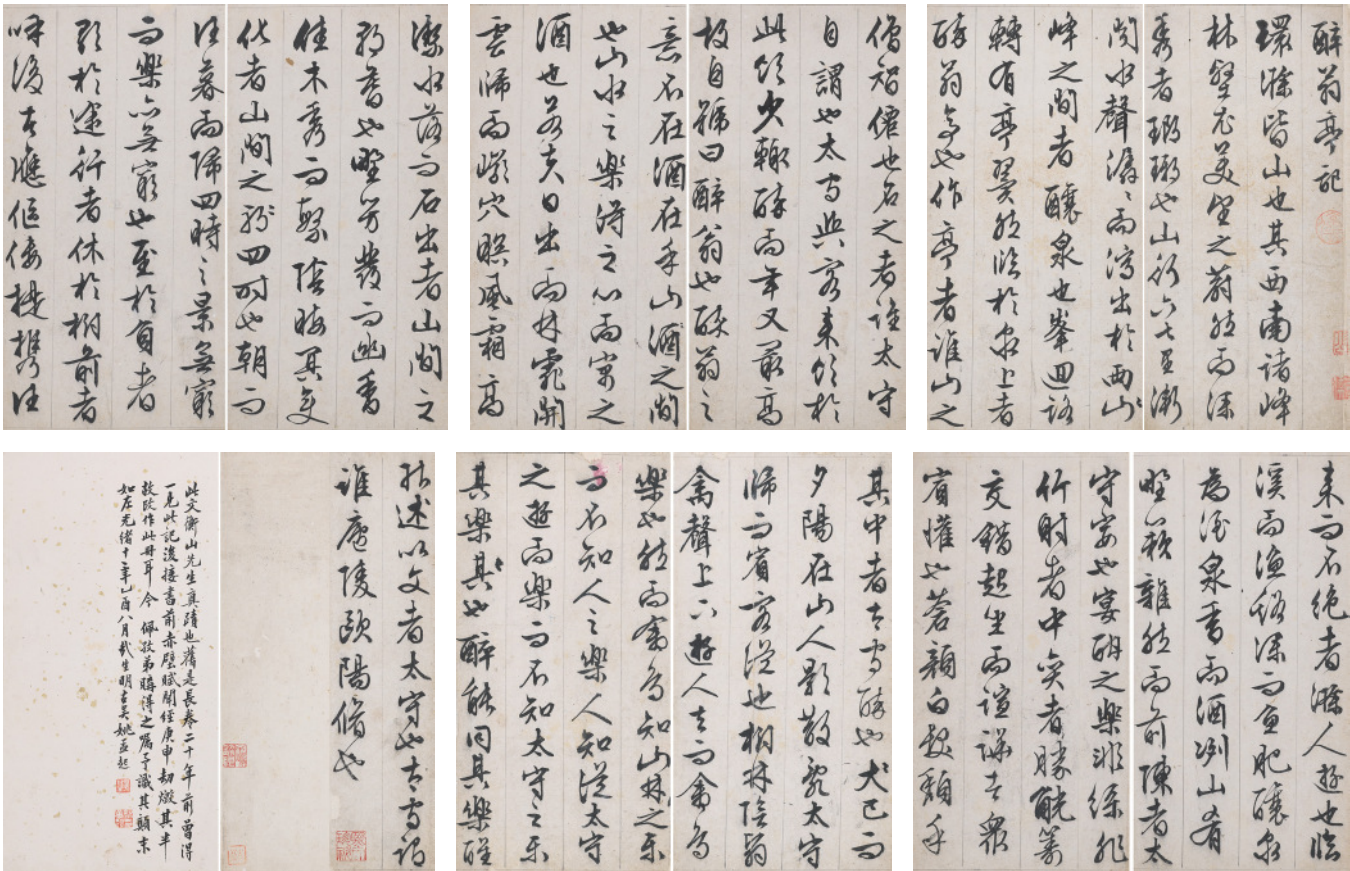 醉翁亭記
環滁皆山也其西南諸峰
林壑尤美望之蔚然而深
秀者瑯琊也山行六七里漸
聞水聲潺〻而瀉出於兩山
峰之間者釀泉也峯迴路
轉有亭翼然臨於泉上者
醉翁亭也作亭者誰山之
僧智僊也名之者誰太守
自謂也太守與客來飲於
此飲少輒醉而年又最高
故自號曰醉翁也醉翁之
意不在酒在乎山酒之間
也山水之樂得之心而寓之
酒也若夫日出而林霏開
雲歸而巖穴暝風霜高
潔水落而石出者山間之
朝暮也野芳發而幽香
佳木秀而繁陰晦冥變
化者山間之朝四時也朝而
往暮而歸四時之景無窮
而樂亦無窮也至於負者
歌於途行者休於樹前者
呼後者應傴僂提攜往
來而不絕者滁人遊也臨
溪而漁谿深而魚肥釀泉
為酒泉香而酒冽山肴
野蔌雜然而前陳者太
守宴也宴酣之樂非絲非
竹射者中奕者勝觥籌
交錯起坐而諠譁者衆
賓懽也蒼顏白髮頹乎
其中者太守醉也犬已而
夕陽在山人影散亂太守
歸而賓客從也樹林陰翳
禽聲上下遊人去而禽鳥
樂也然而禽鳥知山林之樂
而不知人之樂人知從太守
之遊而樂而不知太守之樂
其樂其也醉能同其樂醒
能述以文者太守也太守謂
誰廬陵歐陽脩也
此文衡山先生真蹟也舊是長卷二十年前曾得
一見此記後接書前赤壁賦聞經庚申劫燬其半
故改作此冊耳今佩孜弟購得之屬予識其顛末
如左光緒十一年乙酉八月哉生明古吳姚孟起